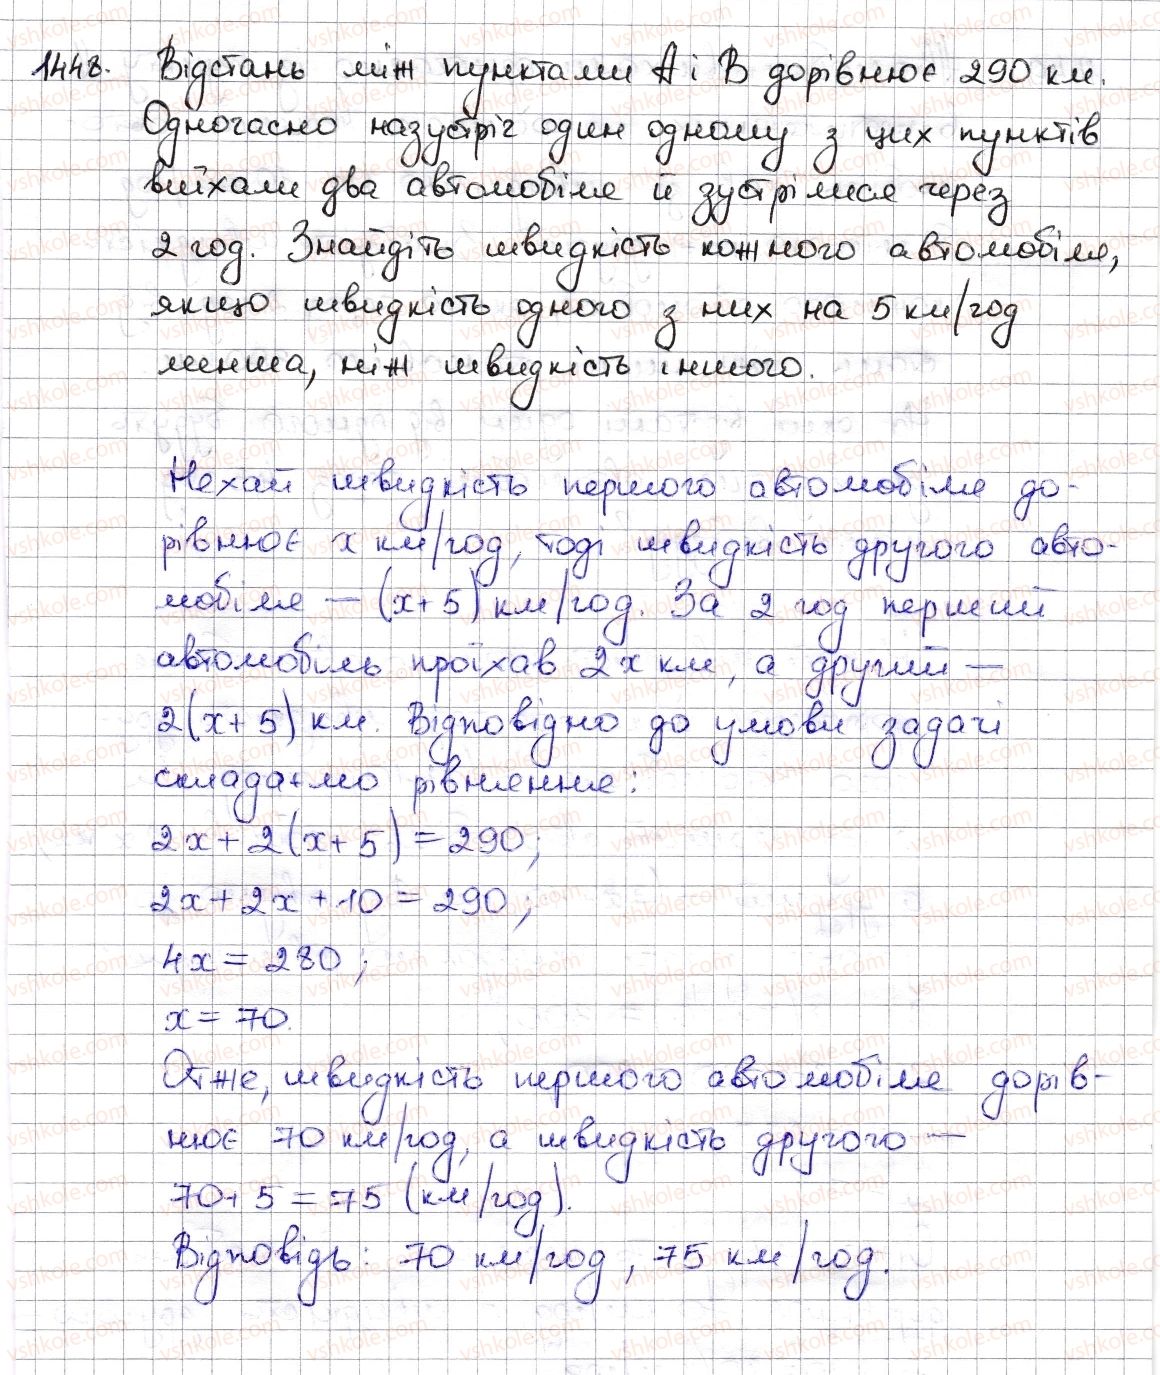 1448. Відстань між пунктами А і В дорівнює 290 км.
Одночасно назустріч один одному з цих пунктів
виїхали два автомобіля й зустрілися через
2 год. Знайдіть швидкість кожного автомобіля,
якщо швидкість одного з них на 5 км/год
менша, ніж швидкість іншого.
Нехай швидкість першого автомобіля до-
рівнює x км/год, тоді швидкість другого авто-
мобіля — (x+5) км/год. За 2 год перший
автомобіль проїхав 2x км, а другий —
2(x+5) км. Відповідно до умови задачі
складаємо рівняння:
2x+2(x+5)=290;
2x+2x+10=290;
4x=280;
x=70.
Отже, швидкість першого автомобіля дорів-
нює 70 км/год, а швидкість другого —
70+5=75 (км/год).
Відповідь: 70 км/год, 75 км/год.